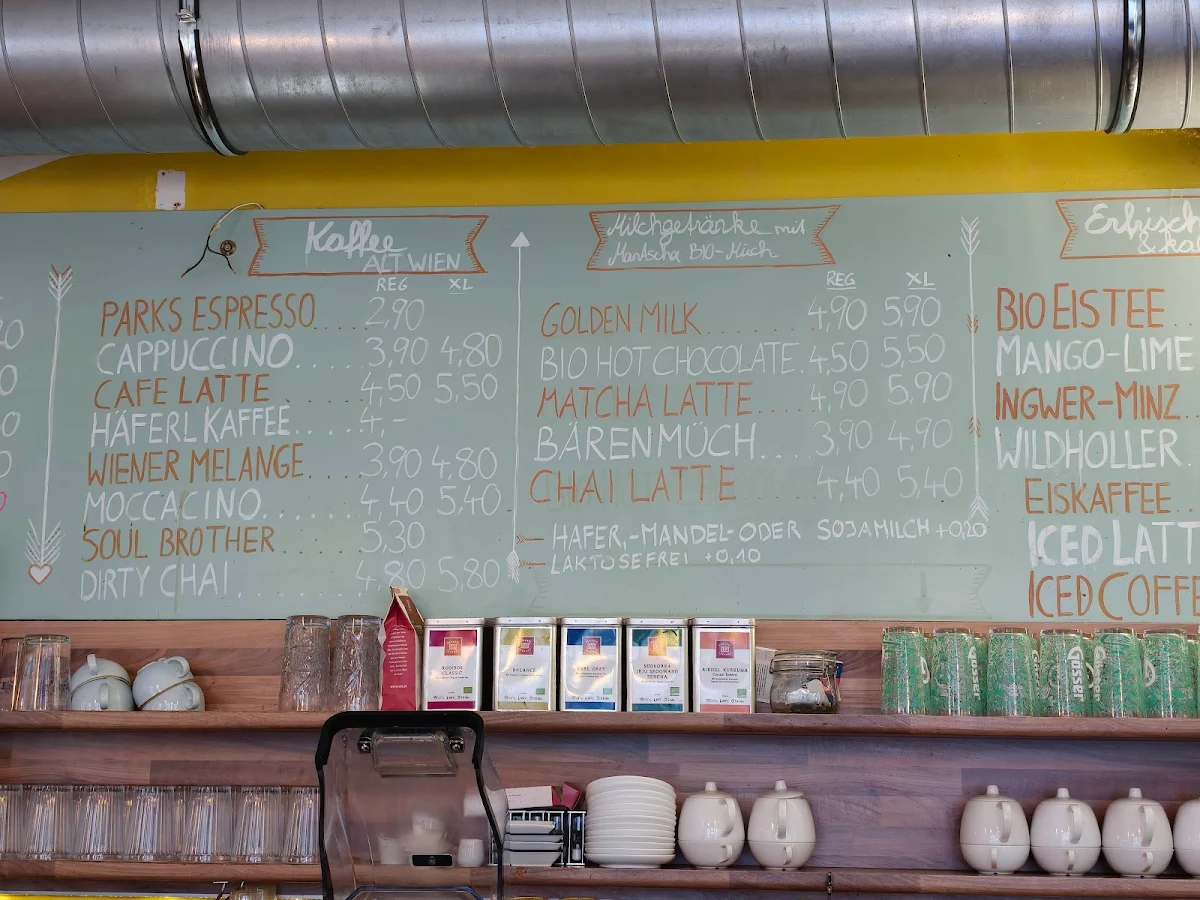 Kaffee
ALT WIEN
REG XL
PARKS ESPRESSO..... 2,90
CAPPUCCINO....... 3,90 4,80
CAFE LATTE........ 4,50 5,50
HÄFERL KAFFEE...... 4,-
WIENER MELANGE..... 3,90 4,80
MOCCACINO....... 4,40 5,40
SOUL BROTHER...... 5,30
DIRTY CHAI....... 4,80 5,80
Milchgetränke mit
BIO-Müch
REG XL
GOLDEN MILK........ 4,90 5,90
BIO HOT CHOCOLATE. 4,50 5,50
MATCHA LATTE.... 4,90 5,90
BÄRENMÜCH.... 3,90 4,90
CHAI LATTE..... 4,40 5,40
HAFER,-MANDEL-ODER SOJAMILCH +0,20
LAKTOSEFREI +0,10
BIO EISTEE...
MANGO-LIME
INGWER-MINZ..
WILDHOLLER.
EISKAFFEE..
ICED LATT
ICED COFFE
ROOIBOS
CLASSIC
BALANCE
EARL GREY
SENCHA